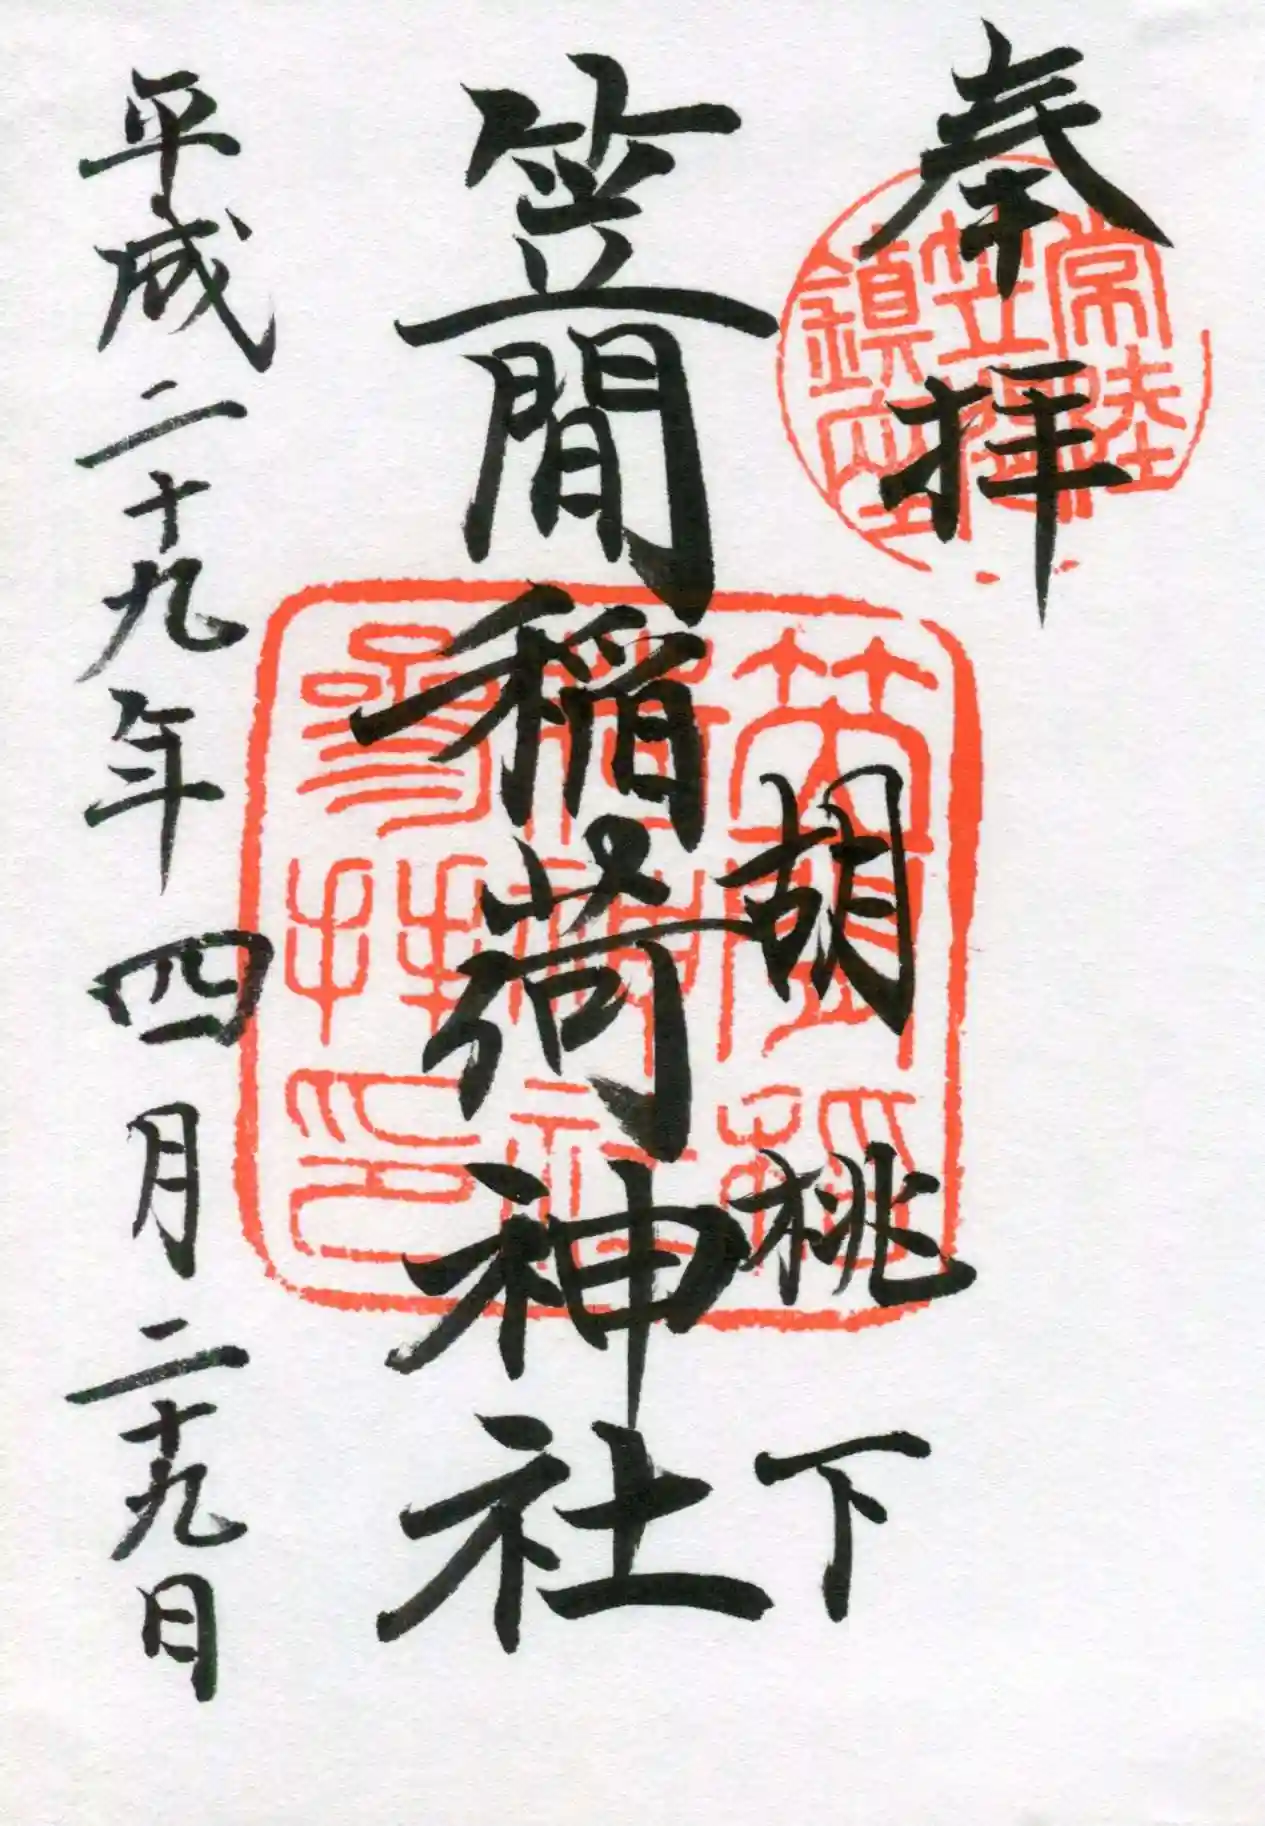 奉拝
常陸
笠
鎮座
胡桃下
笠間稲荷神社
笠間稲
荷神社
参拝印
平成二十九年四月二十九日